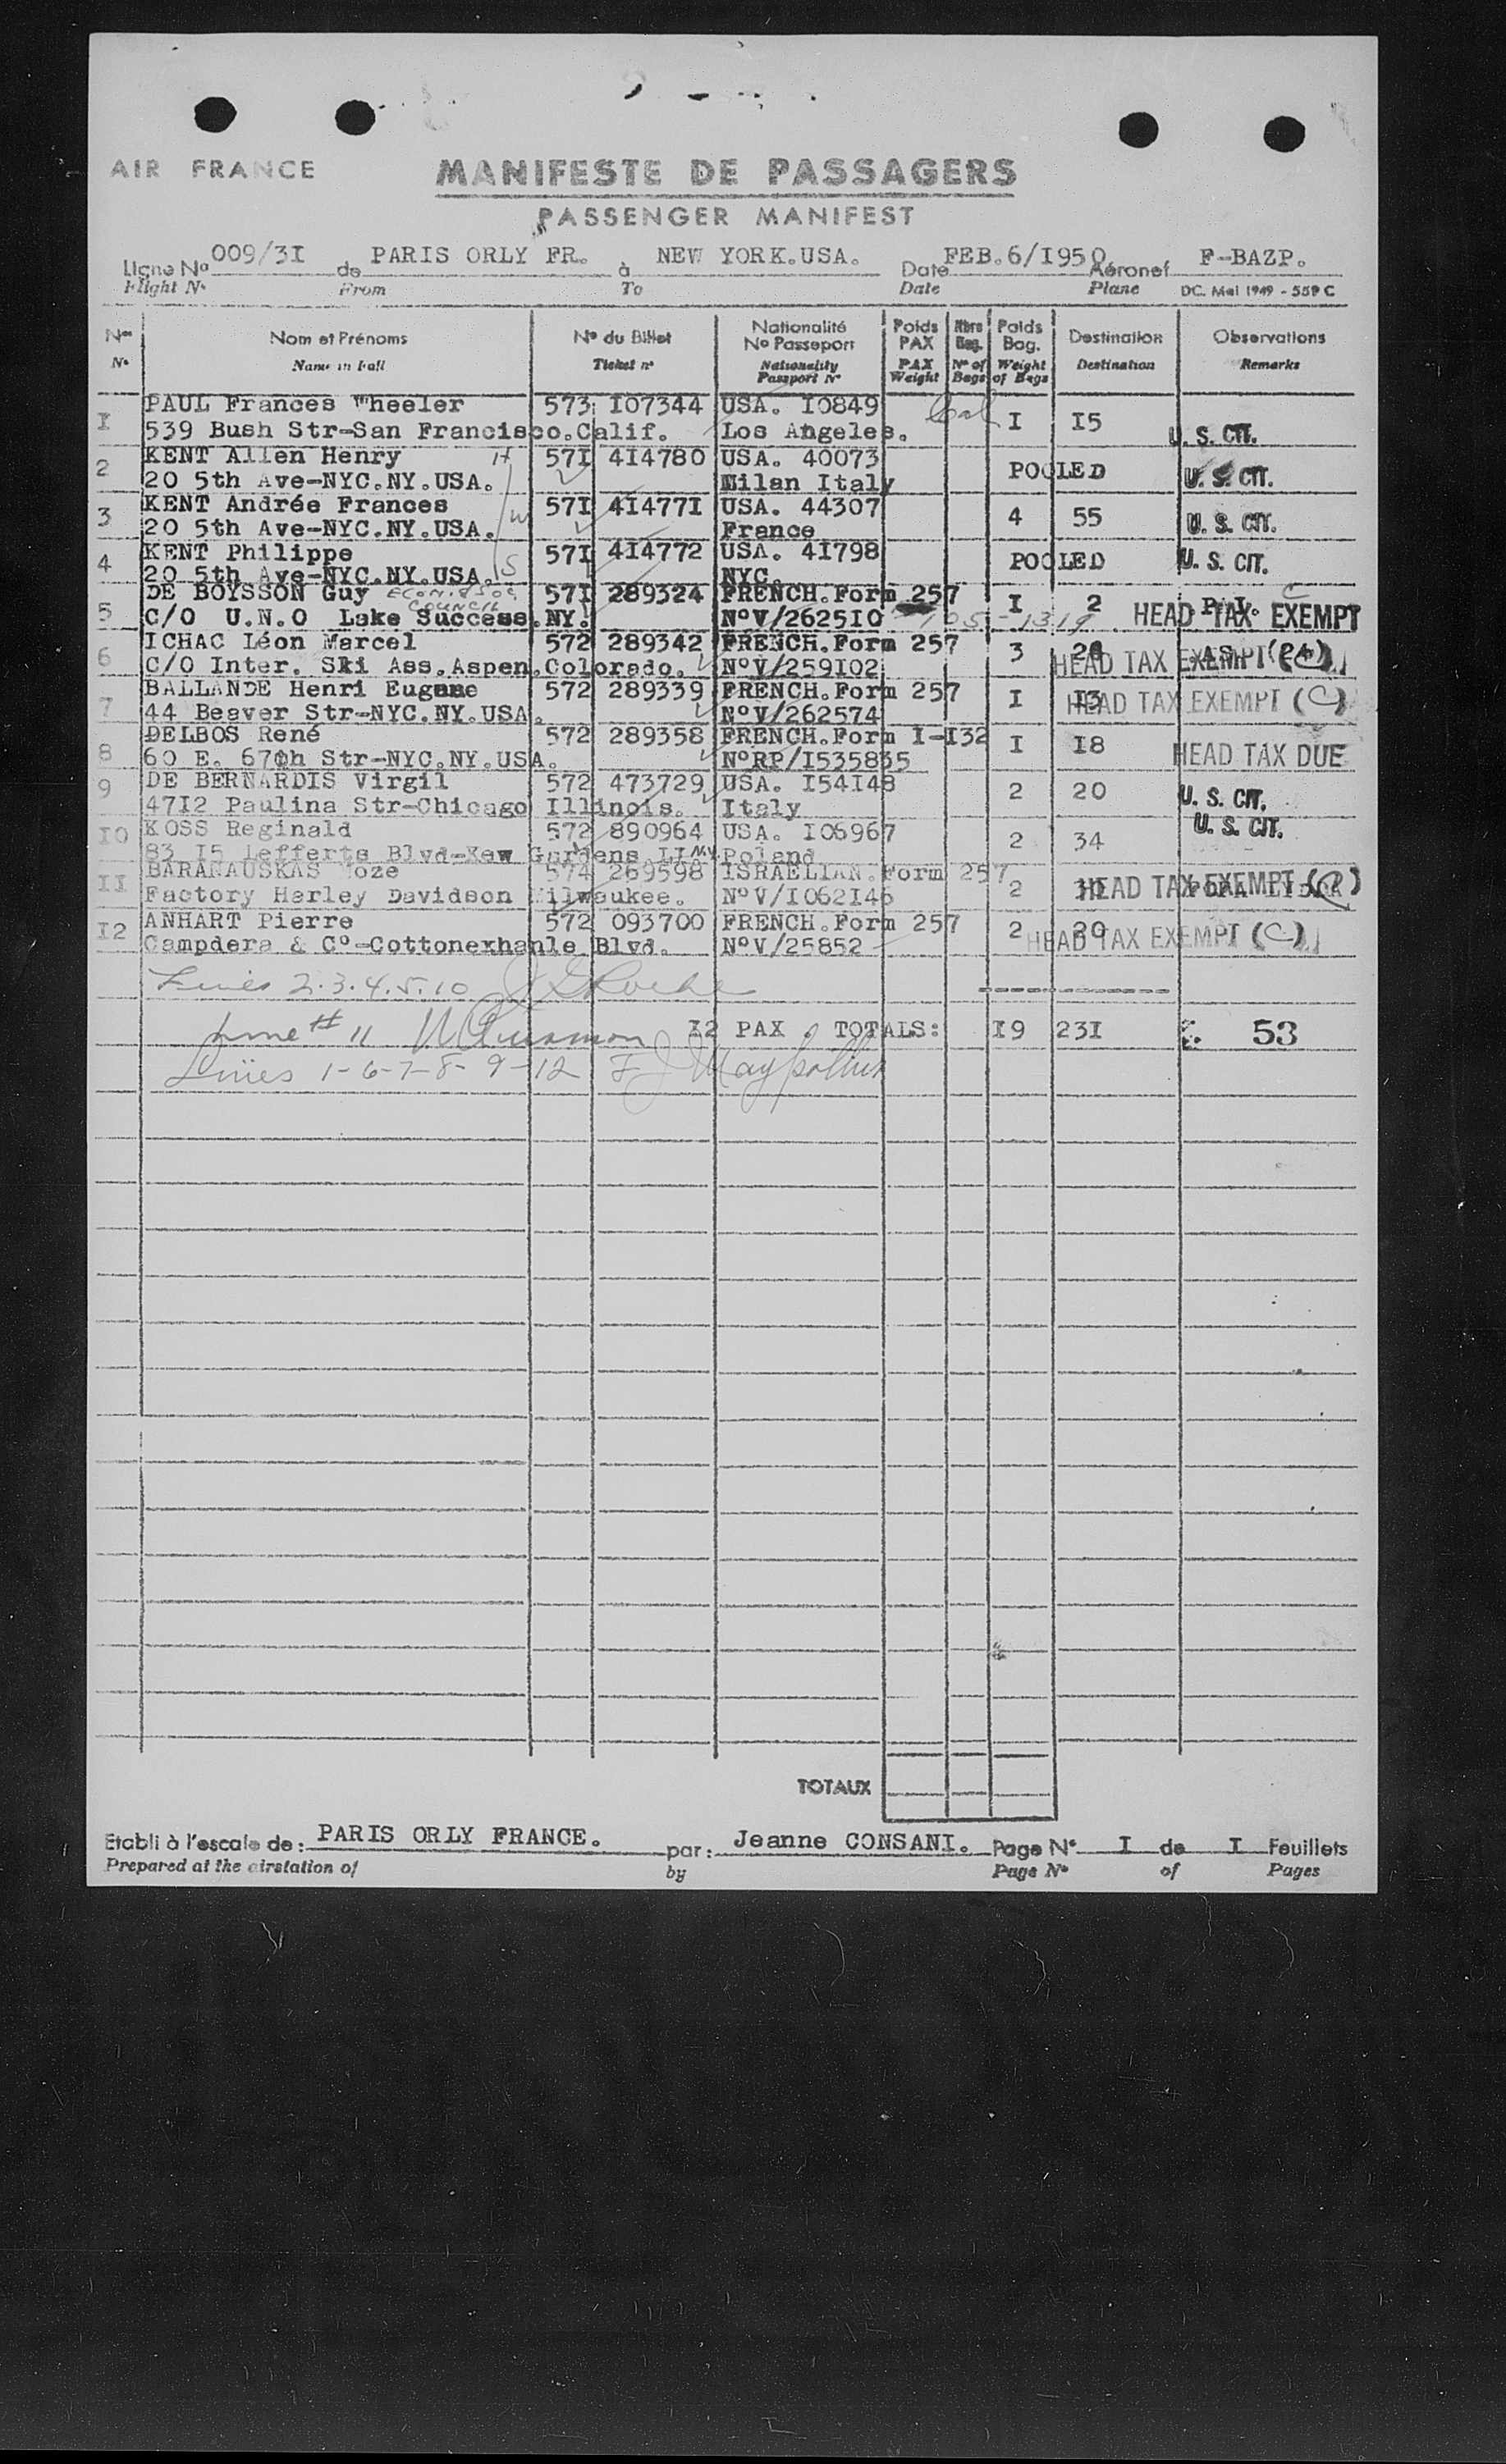 AIR FRANCE
MANIFESTE DE PASSAGERS
PASSENGER MANIFEST
Ligne No 009/3I de PARIS ORLY FR. à NEW YORK.USA. Date FEB.6/I950 Aéronef F-BAZP.
Flight No From To Date Plane DC. Mai 1949 - 559 C
Nos Nom et Prénoms No du Billet Nationalité No Passeport Poids PAX Nbre Bag. Poids Bag. Destination Observations
No Name in full Ticket no Nationality Passport No PAX Weight No of Bags Weight of Bags Destination Remarks
I PAUL Frances Wheeler 573 I07344 USA. I0849 I I5 U. S. CIT.
539 Bush Str-San Francisco.Calif. Los Angeles.
2 KENT Allen Henry H 57I 414780 USA. 40073 POOLED U. S. CIT.
20 5th Ave-NYC.NY.USA. Milan Italy
3 KENT Andrée Frances W 57I 41477I USA. 44307 4 55 U. S. CIT.
20 5th Ave-NYC.NY.USA. France
4 KENT Philippe S 57I 414772 USA. 4I798 POOLED U. S. CIT.
20 5th Ave-NYC.NY.USA. NYC.
5 DE BOYSSON Guy 57I 289324 FRENCH.Form 257 I 2 HEAD TAX EXEMPT C
COUNCIL
C/O U.N.O Lake Success.NY. NoV/2625I0
6 ICHAC Léon Marcel 572 289342 FRENCH.Form 257 3 HEAD TAX EXEMPT (C)
C/O Inter. Ski Ass.Aspen.Colorado. NoV/259I02
7 BALLANDE Henri Eugene 572 289339 FRENCH.Form 257 I I3 HEAD TAX EXEMPT (C)
44 Beaver Str-NYC.NY.USA. NoV/262574
8 DELBOS René 572 289358 FRENCH.Form I-I32 I I8 HEAD TAX DUE
60 E. 67th Str-NYC.NY.USA. NoRP/I535835
9 DE BERNARDIS Virgil 572 473729 USA. I54I48 2 20 U. S. CIT.
47I2 Paulina Str-Chicago Illinois. Italy
I0 KOSS Reginald 572 890964 USA. I06967 2 34 U. S. CIT.
83 I5 Lefferts Blvd-Kew Gardens LI NY Poland
II BARANAUSKAS 574 269598 ISRAELIAN.Form 257 2 HEAD TAX EXEMPT
Factory Harley Davidson Milwaukee. NoV/I062I46
I2 ANHART Pierre 572 093700 FRENCH.Form 257 2 HEAD TAX EXEMPT (C)
Campdera & Co-Cottonexhanle Blvd. NoV/25852
Lines 2.3.4.5.10
Line # 11 I2 PAX . TOTALS: I9 23I 53
Lines 1-6-7-8-9-12
TOTAUX
Etabli à l'escale de: PARIS ORLY FRANCE. par: Jeanne CONSANI. Page No I de I Feuillets
Prepared at the airstation of by Page No of Pages